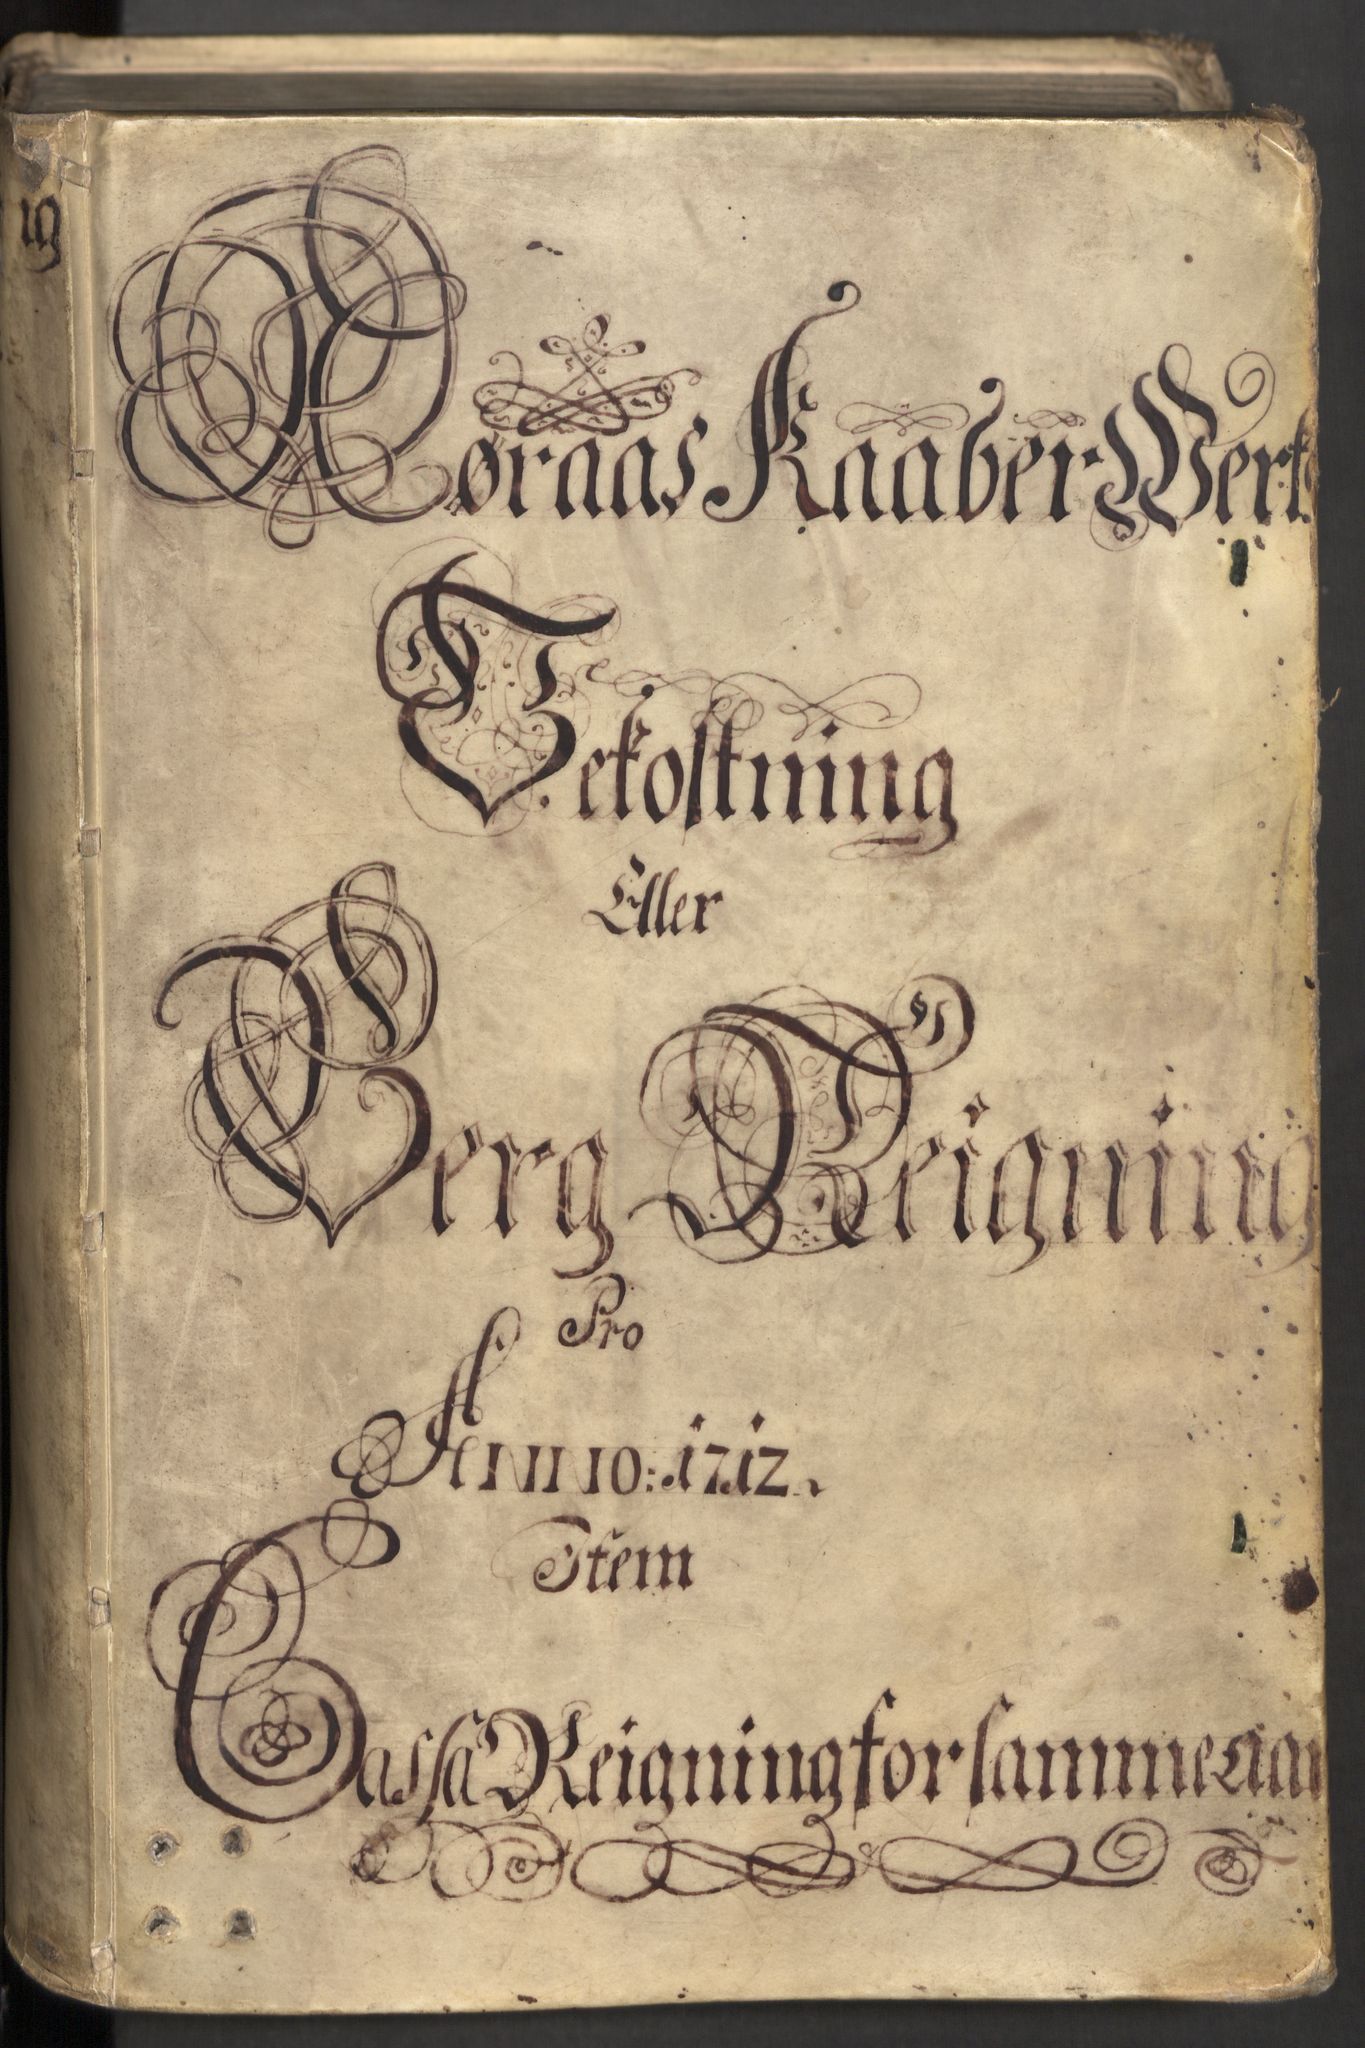 19
Røraas Kaaber Werk
Bekostning
Eller
Berg Reigning
Pro
ANNO: 1712.
Item
Cassa Reigning for samme aar